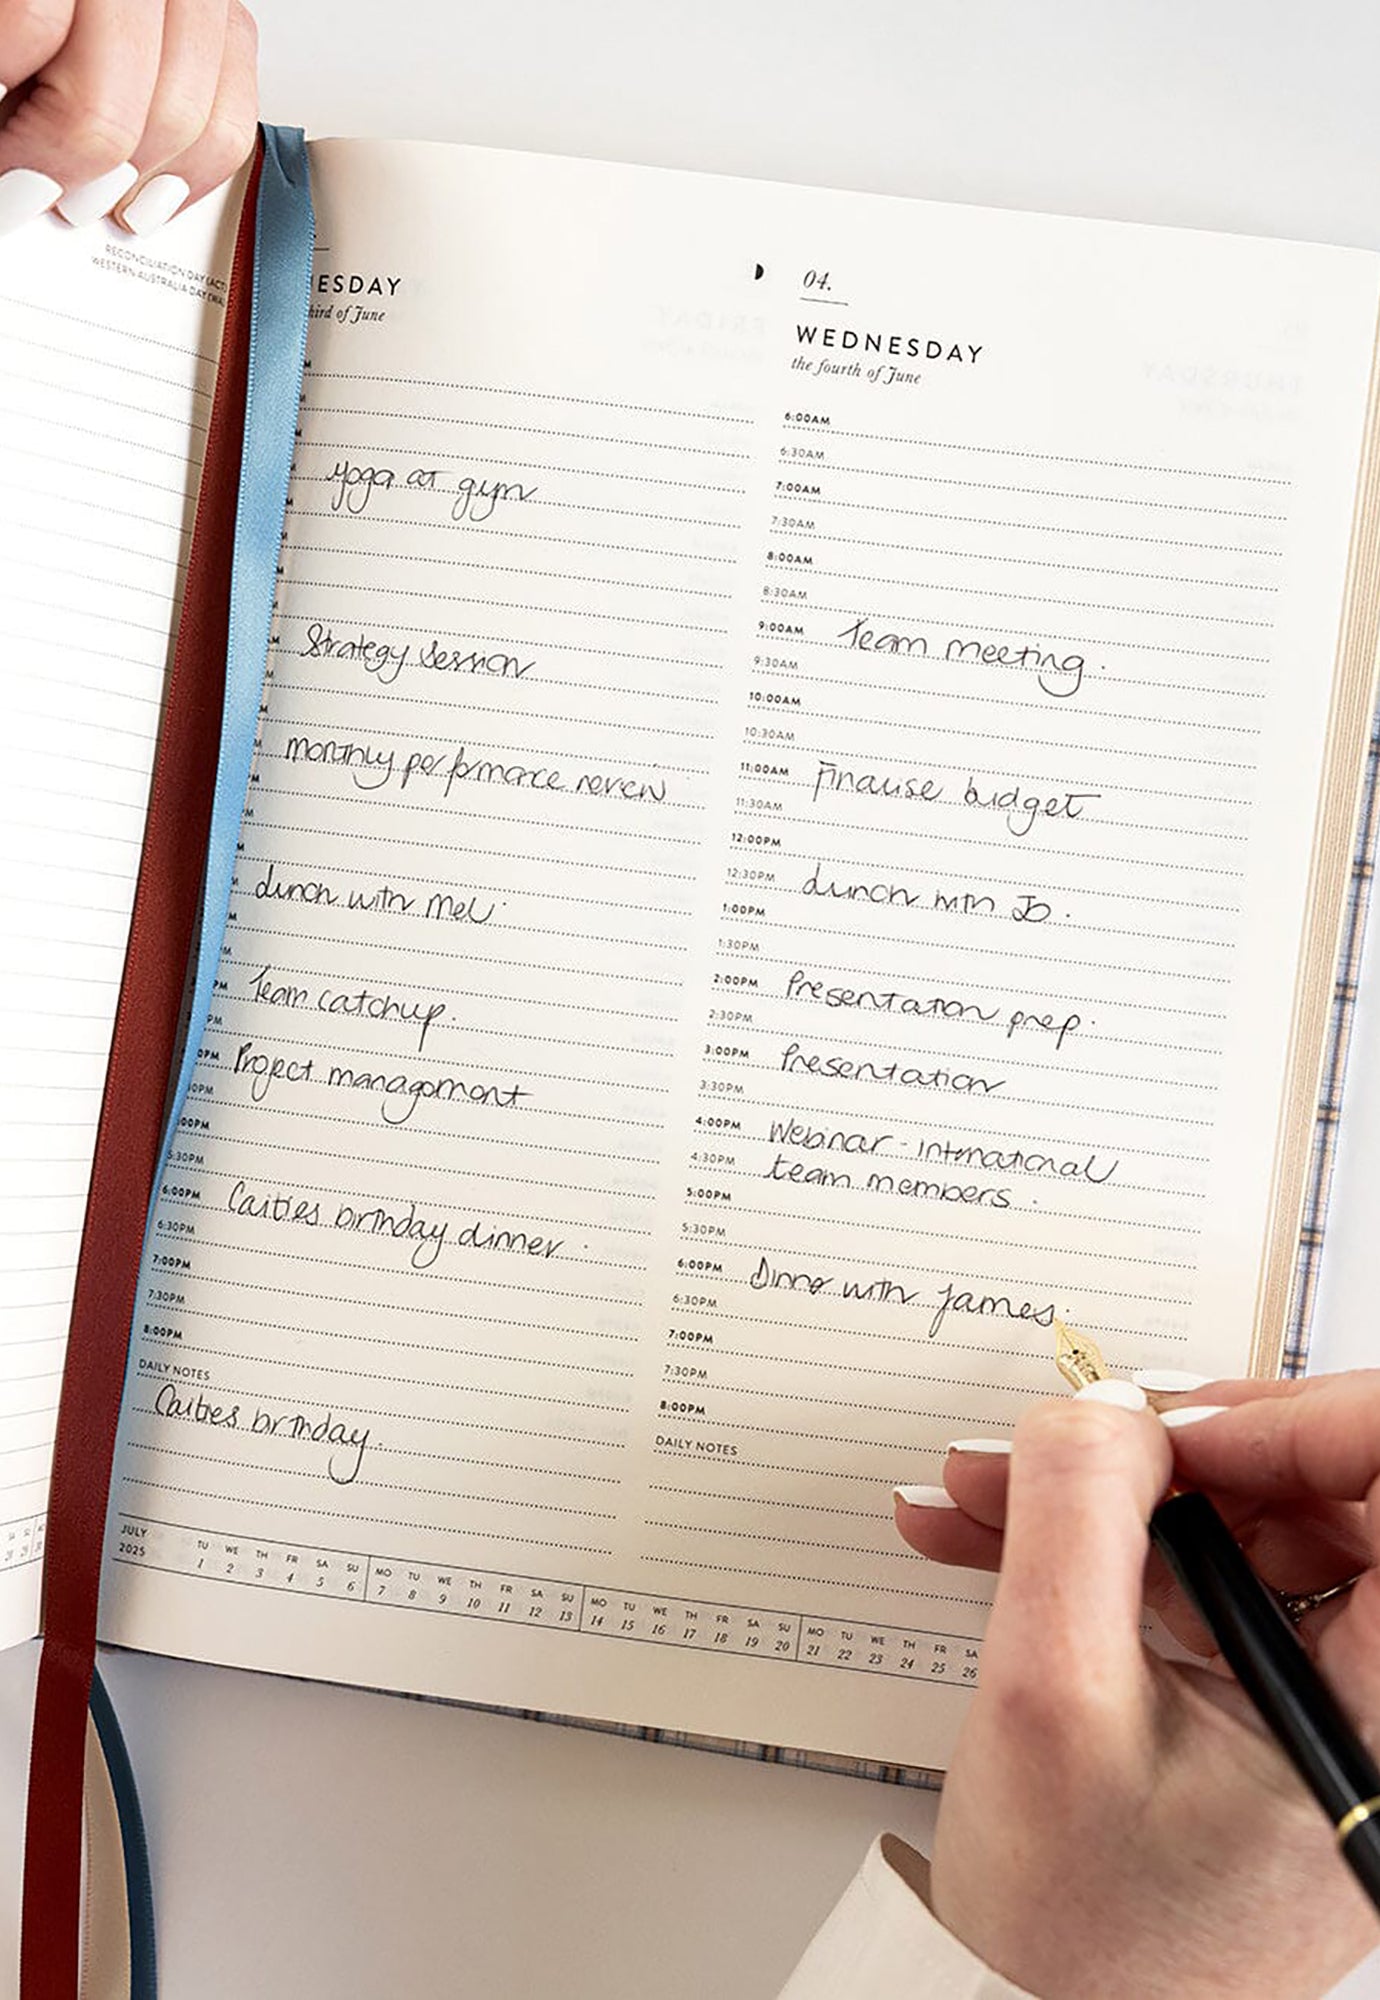 RECONCILIATION DAY (ACT)
WESTERN AUSTRALIA DAY (WA)
ESDAY
third of June
yoga at gym
Strategy session
monthly performance review
Lunch with Mel.
Team catchup.
Project management
5:30PM
6:00PM Caities birthday dinner.
6:30PM
7:00PM
7:30PM
8:00PM
DAILY NOTES
Caities birthday.
04.
WEDNESDAY
the fourth of June
6:00AM
6:30AM
7:00AM
7:30AM
8:00AM
8:30AM
9:00AM Team meeting.
9:30AM
10:00AM
10:30AM
11:00AM Finalise budget
11:30AM
12:00PM
12:30PM Lunch with Jo.
1:00PM
1:30PM
2:00PM Presentation prep.
2:30PM
3:00PM Presentation
3:30PM
4:00PM Webinar - international
4:30PM team members.
5:00PM
5:30PM
6:00PM Dinner with James.
6:30PM
7:00PM
7:30PM
8:00PM
DAILY NOTES
JULY
2025
TU WE TH FR SA SU MO TU WE TH FR SA SU MO TU WE TH FR SA SU MO TU WE TH FR SA
1 2 3 4 5 6 7 8 9 10 11 12 13 14 15 16 17 18 19 20 21 22 23 24 25 26